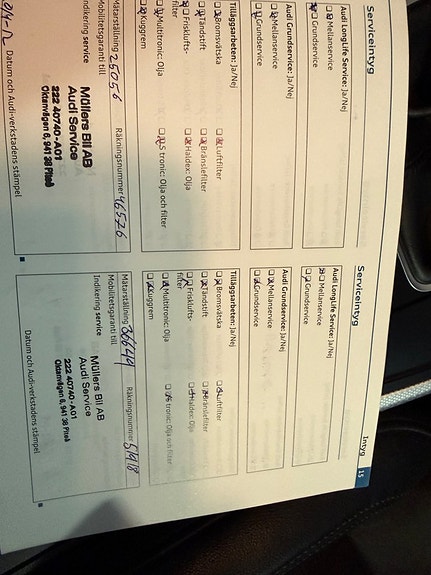 Intyg 15
Serviceintyg
Audi LongLife Service: Ja/Nej
Mellanservice
Grundservice
Audi Grundservice: Ja/Nej
Mellanservice
Grundservice
Tilläggsarbeten: Ja/Nej
Bromsvätska
Luftfilter
Tändstift
Bränslefilter
Friskluftsfilter
Haldex: Olja
Multitronic: Olja
S tronic: Olja och filter
Kuggrem
Mätarställning 25056
Räkningsnummer 46526
Mobilitetsgaranti till
Indikering service
Müllers Bil AB
Audi Service
222 40740-A01
Oktanvägen 6, 941 38 Piteå
Datum och Audi-verkstadens stämpel
Serviceintyg
Audi LongLife Service: Ja/Nej
Mellanservice
Grundservice
Audi Grundservice: Ja/Nej
Mellanservice
Grundservice
Tilläggsarbeten: Ja/Nej
Bromsvätska
Luftfilter
Tändstift
Bränslefilter
Friskluftsfilter
Haldex: Olja
Multitronic: Olja
S tronic: Olja och filter
Kuggrem
Mätarställning
Räkningsnummer
Mobilitetsgaranti till
Indikering service
Müllers Bil AB
Audi Service
222 40740-A01
Oktanvägen 6, 941 38 Piteå
Datum och Audi-verkstadens stämpel